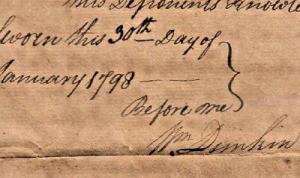 this Deponents
sworn this 30th Day of
January 1798 —
Before me
Wm Dunkin